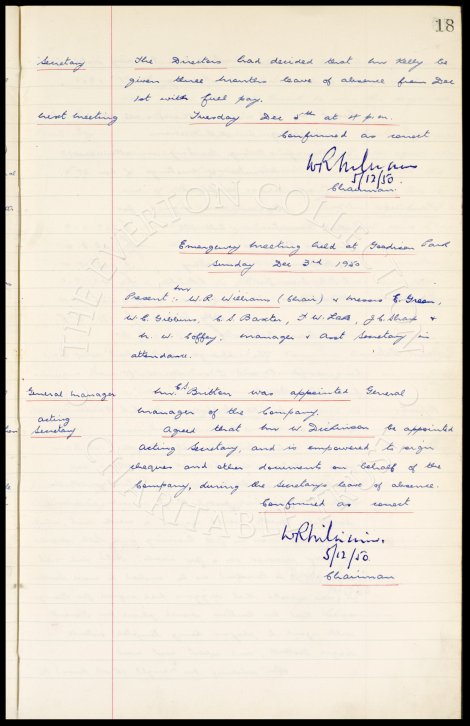 18
Secretary The Directors had decided that Mr Kelly be
given three months leave of absence from Dec
1st with full pay.
Next Meeting Tuesday Dec 5th at 4 p.m.
Confirmed as correct
W R Williams
5/12/50
Chairman.
Emergency Meeting held at Goodison Park
Sunday Dec 3rd 1950
Present :- Mr W. R. Williams (Chair) & Messrs E. Green,
W. C. Gibbins, C. S. Baxter, F. W. Lake, J. C. Sharp &
N. W. Coffey. Manager & Asst Secretary in
attendance.
General Manager Mr. C S Britton was appointed General
Manager of the Company.
Acting Secretary Agreed that Mr W Dickinson be appointed
Acting Secretary, and is empowered to sign
cheques and other document on behalf of the
Company, during the Secretarys leave of absence.
Confirmed as correct
W R Williams.
5/12/50.
Chairman
THE EVERTON COLLECTION
CHARITABLE